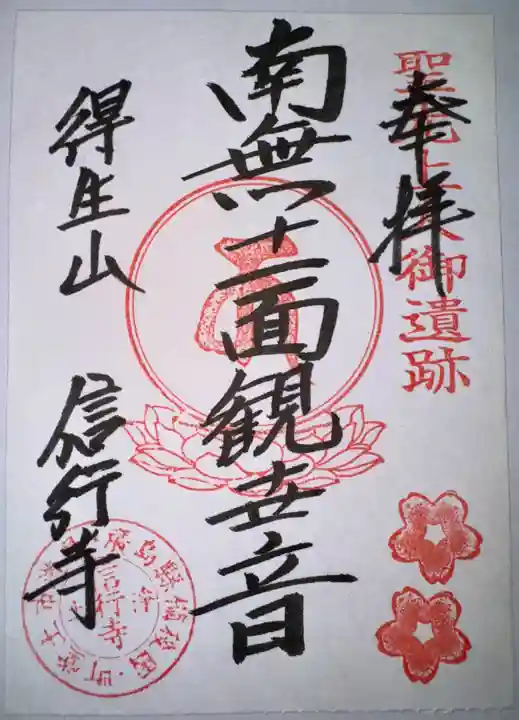 奉拝
聖光上人御遺跡
南無十一面観世音
得生山
信行寺
信行寺